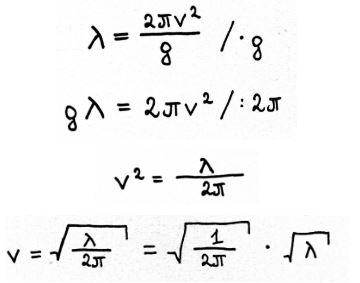 λ = 2πv² / g / · g
gλ = 2πv² / : 2π
v² = λ / 2π
v = √(λ / 2π) = √(1 / 2π) · √λ